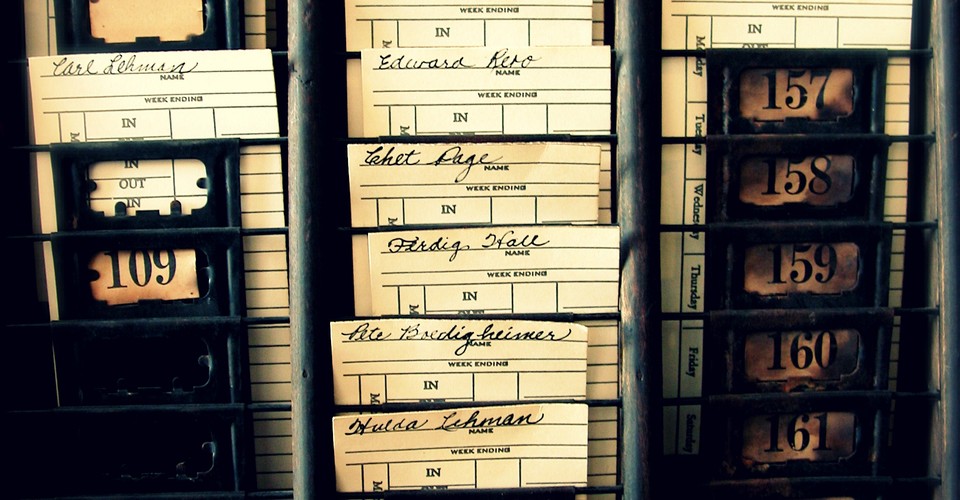 Carl Lehman
NAME
WEEK ENDING
IN
IN
OUT
IN
109
WEEK ENDING
IN
Edward Rero
NAME
WEEK ENDING
IN
Chet Page
NAME
WEEK ENDING
IN
Ferdig Hall
NAME
WEEK ENDING
IN
Pete Boedigheimer
NAME
WEEK ENDING
IN
Hulda Lehman
NAME
WEEK ENDING
IN
WEEK ENDING
IN
OUT
Monday
Tuesday
Wednesday
Thursday
Friday
Saturday
157
158
159
160
161